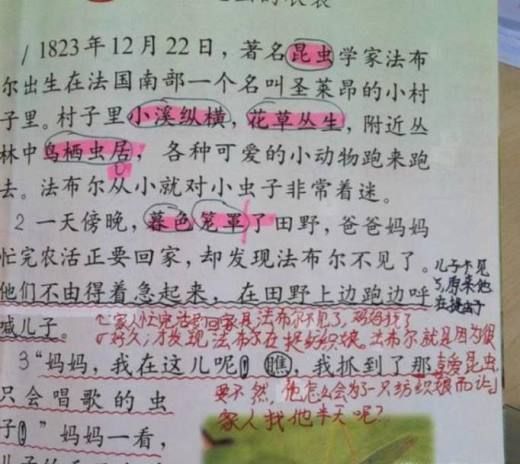 1 1823年12月22日，著名昆虫学家法布
尔出生在法国南部一个名叫圣莱昂的小村
子里。村子里小溪纵横，花草丛生，附近丛
林中鸟栖虫居，各种可爱的小动物跑来跑
去。法布尔从小就对小虫子非常着迷。
2 一天傍晚，暮色笼罩了田野，爸爸妈妈
忙完农活正要回家，却发现法布尔不见了。
儿子不见
了,原来他
在捉虫子
他们不由得着急起来，在田野上边跑边呼
喊儿子。
家人忙完活要回家,法布尔不见了,妈妈找了
好久,才发现法布尔在捉纺织娘。法布尔就是因为很
喜爱昆虫,
3 “妈妈，我在这儿呢！瞧，我抓到了那
要不然,他怎么会为了一只纺织娘而让
只会唱歌的虫
家人找他半天呢?
子！”妈妈一看，